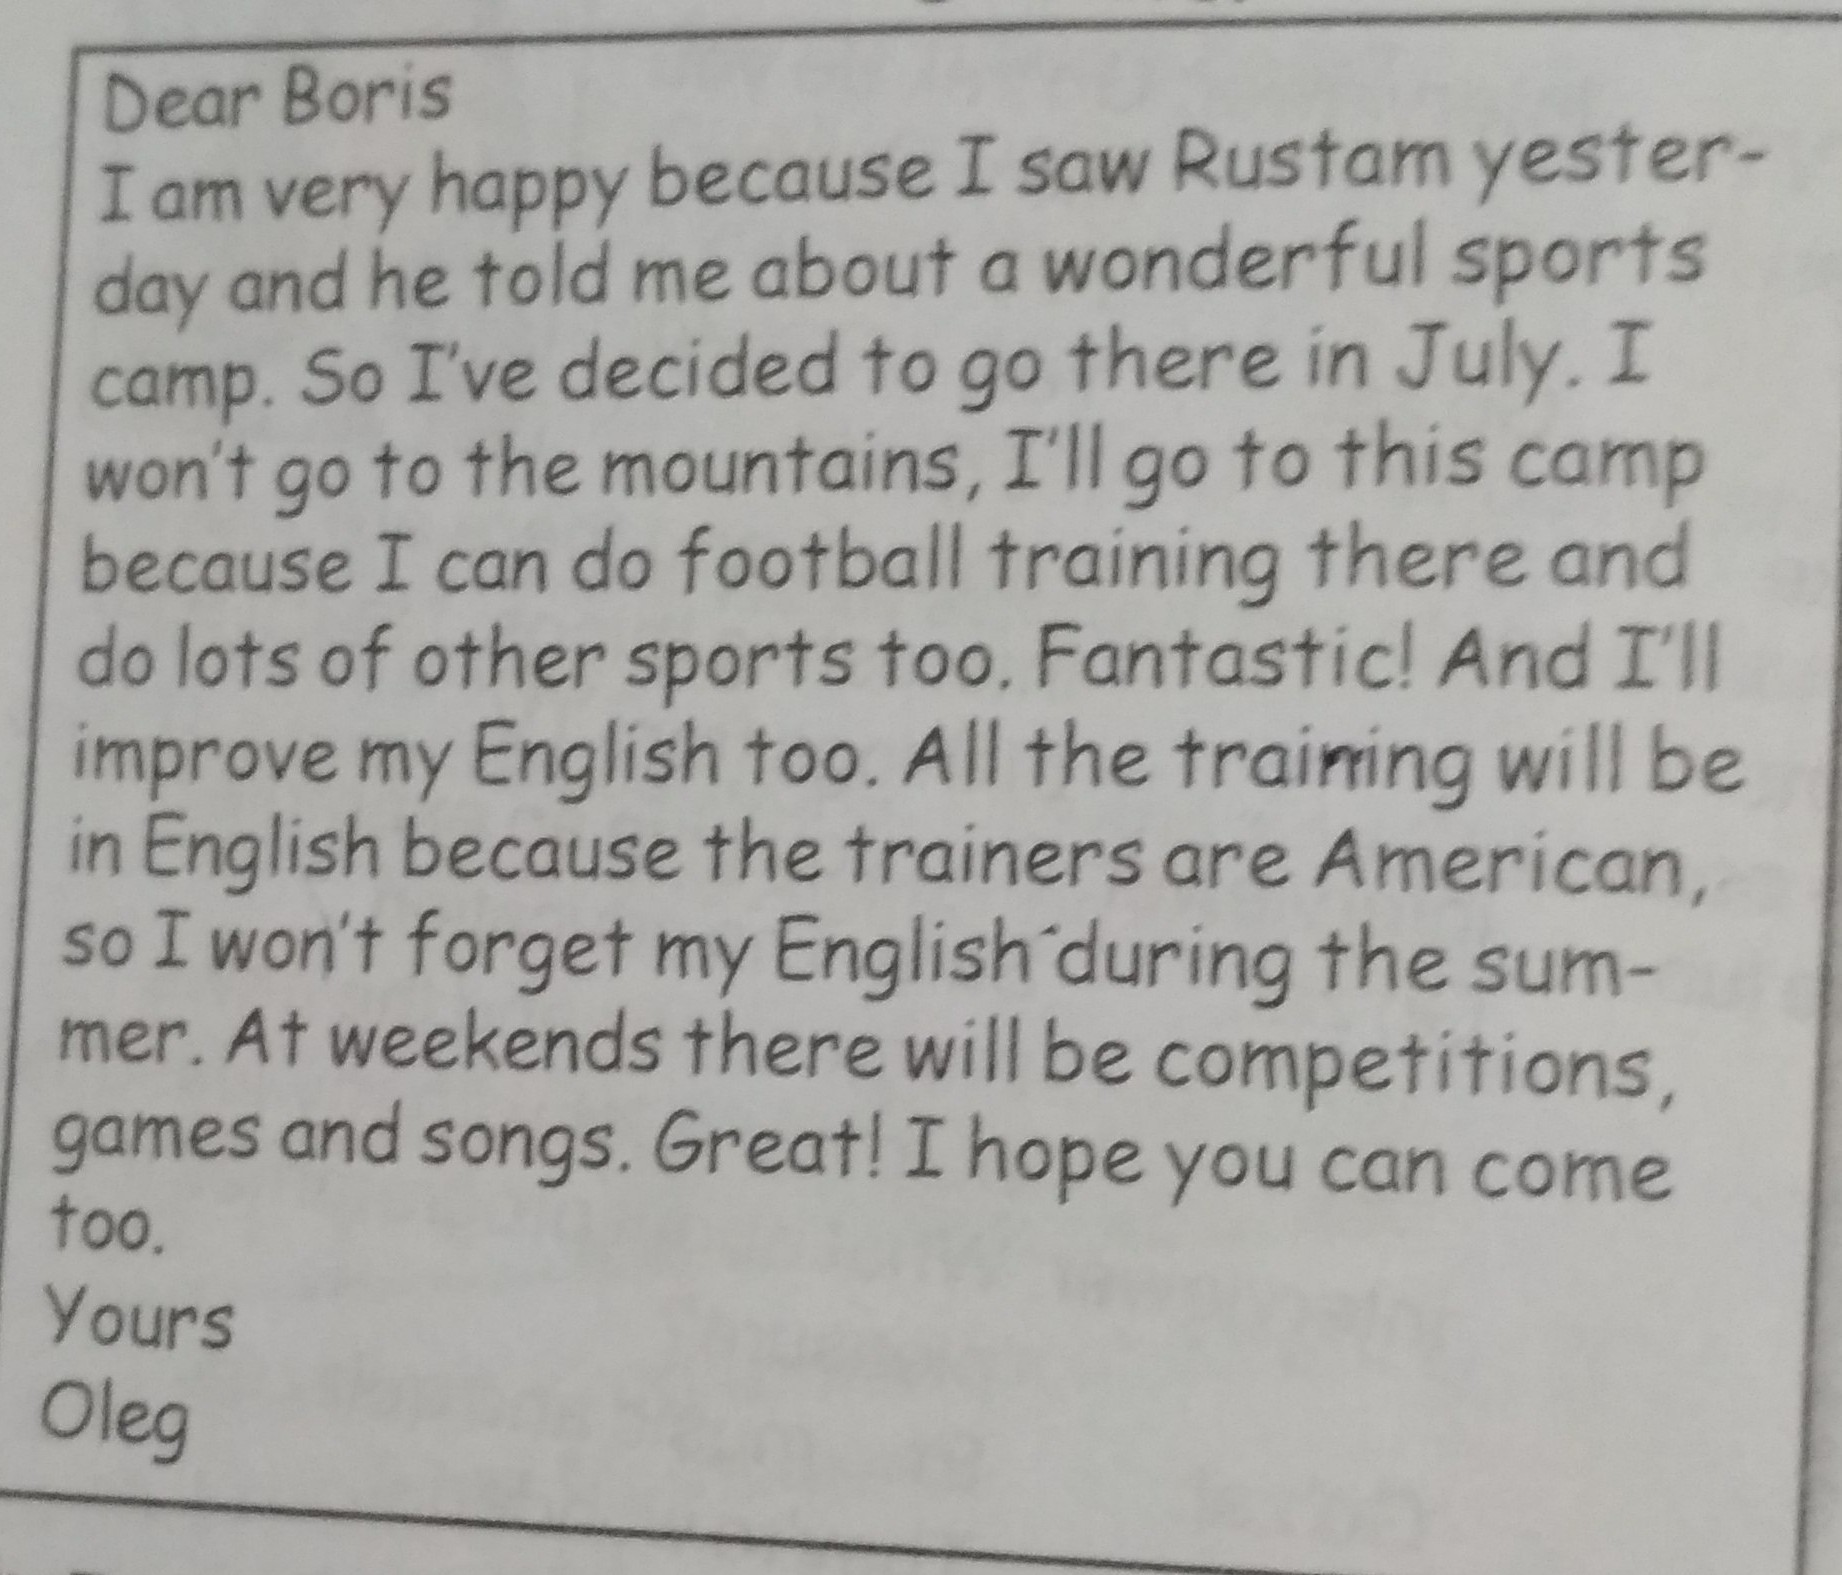 Dear Boris
I am very happy because I saw Rustam yester-
day and he told me about a wonderful sports
camp. So I've decided to go there in July. I
won't go to the mountains, I'll go to this camp
because I can do football training there and
do lots of other sports too. Fantastic! And I'll
improve my English too. All the training will be
in English because the trainers are American,
so I won't forget my English during the sum-
mer. At weekends there will be competitions,
games and songs. Great! I hope you can come
too.
Yours
Oleg